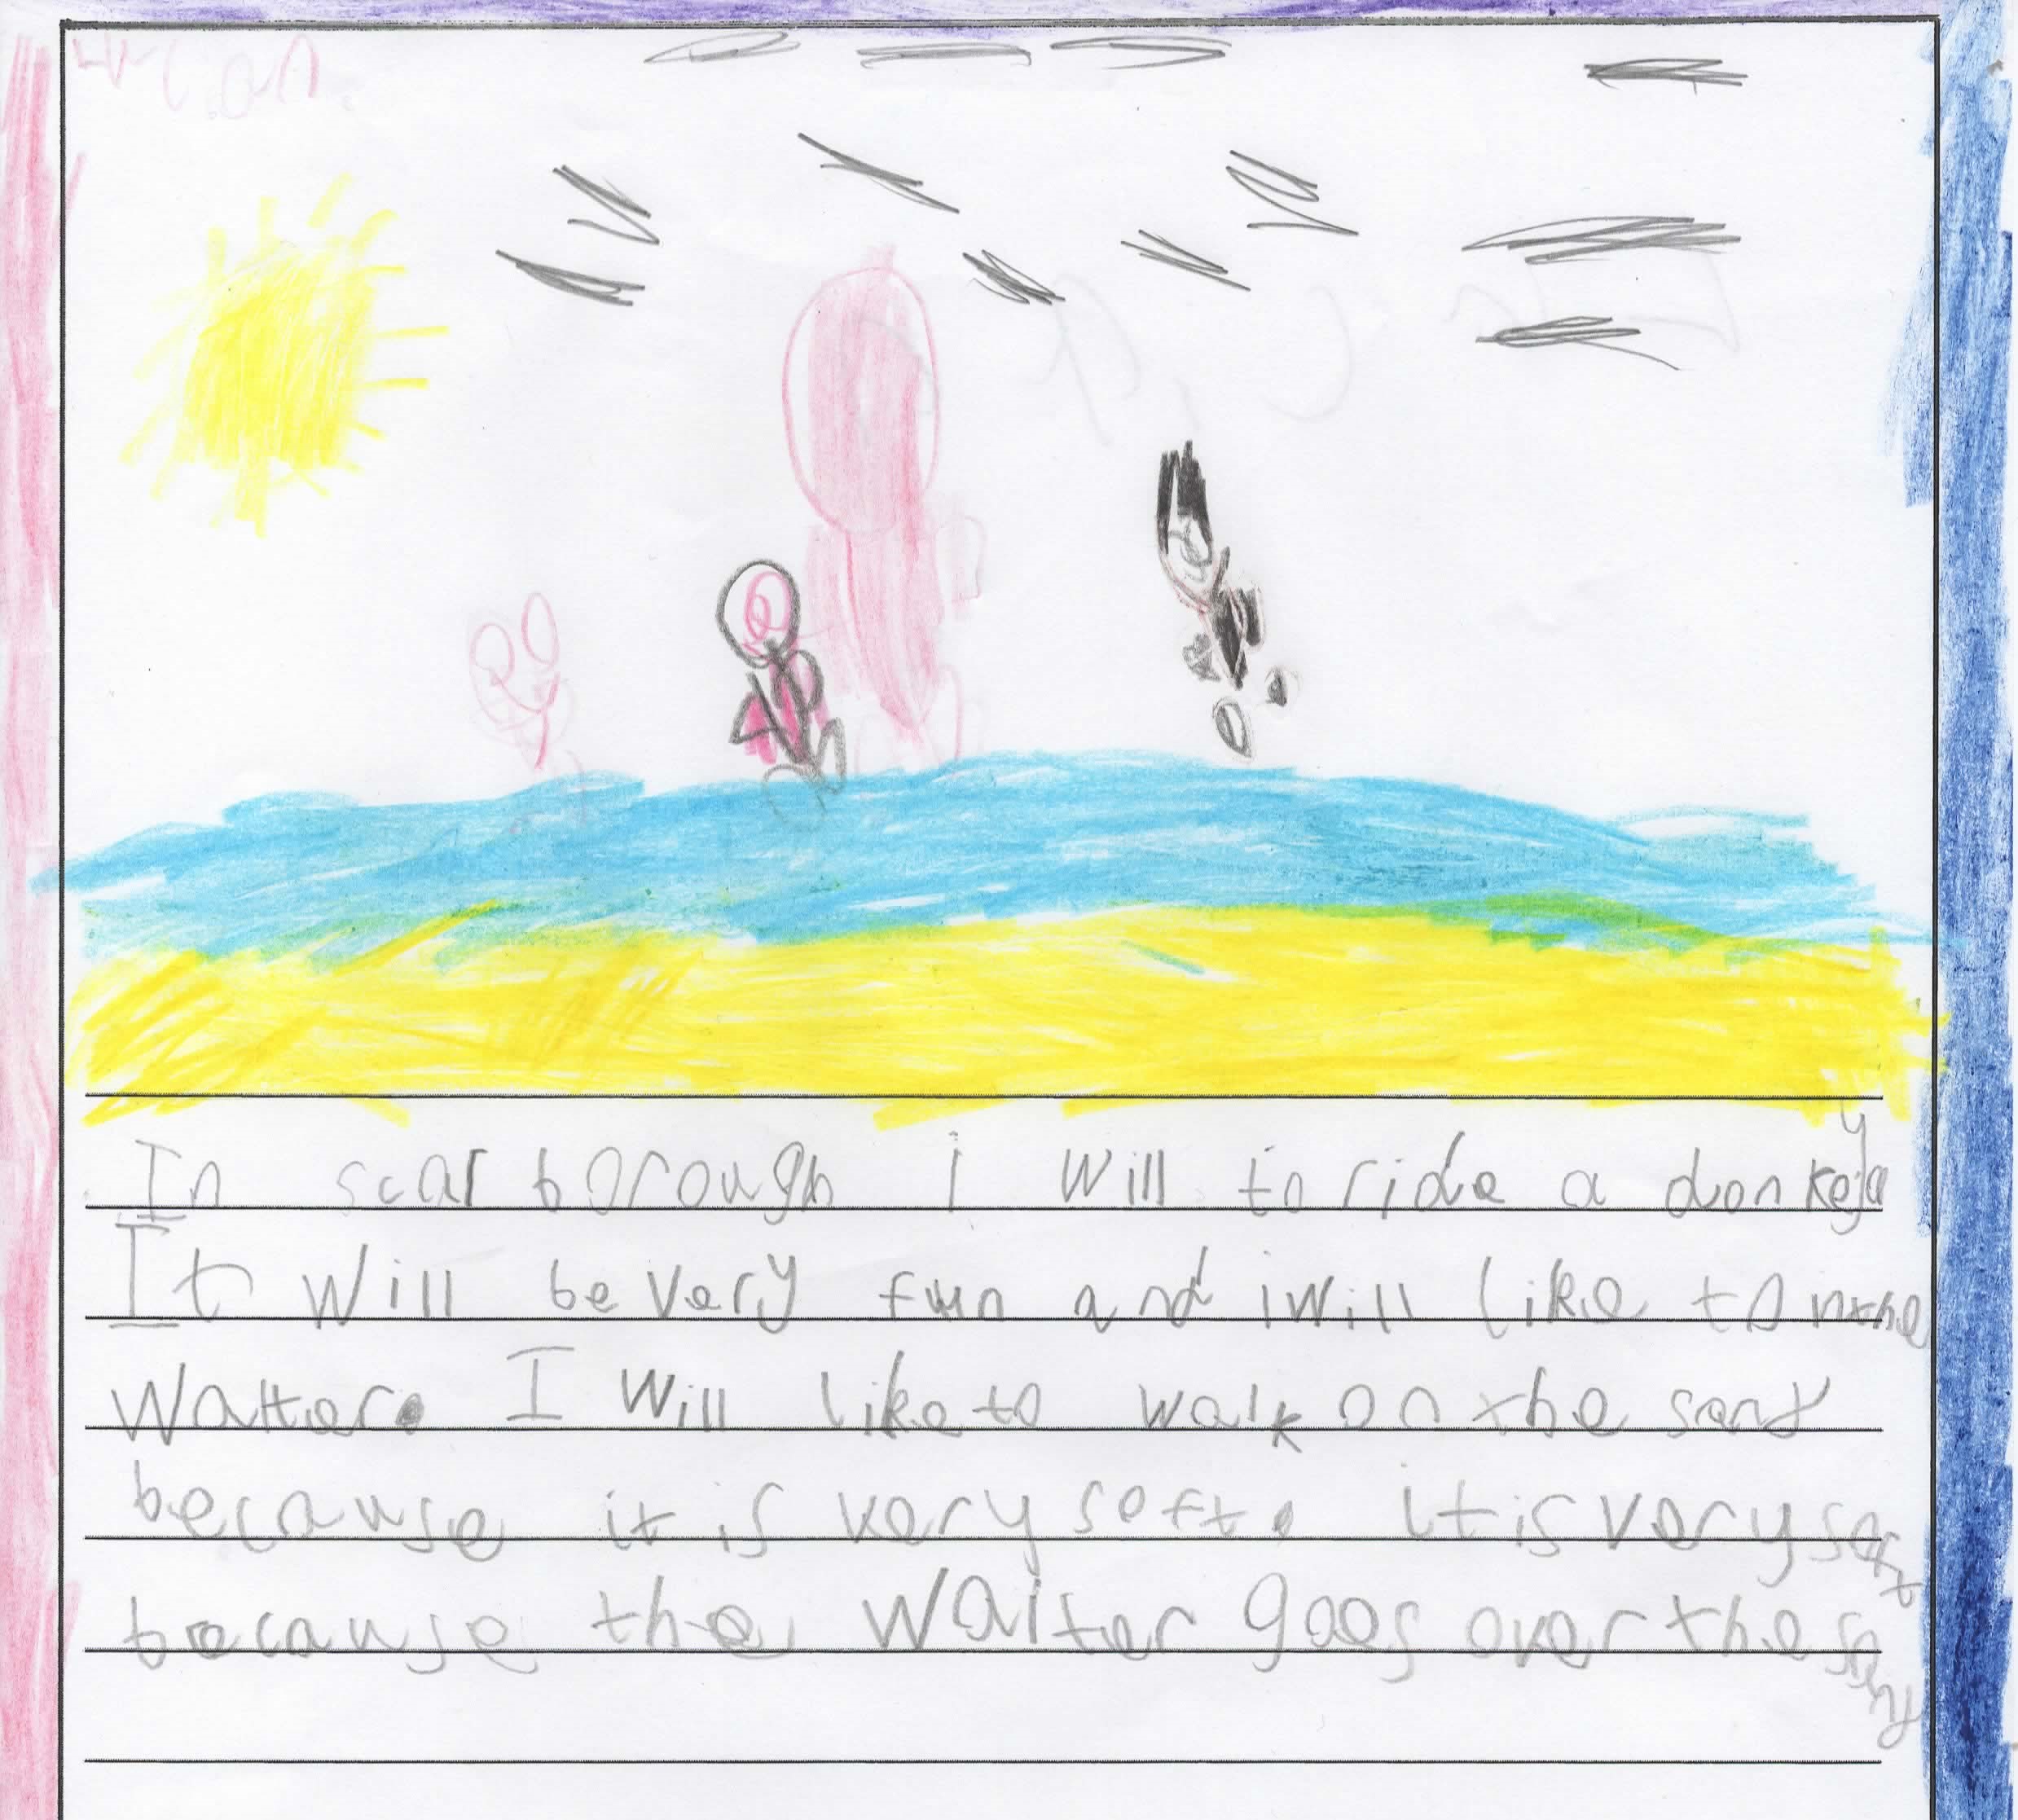 In scarborough i will to ride a donkey
It will be very fun and i will like to n the
Watter. I will like to walk on the sand
because it is very soft. it is very soft
because the Waiter goes over the sand